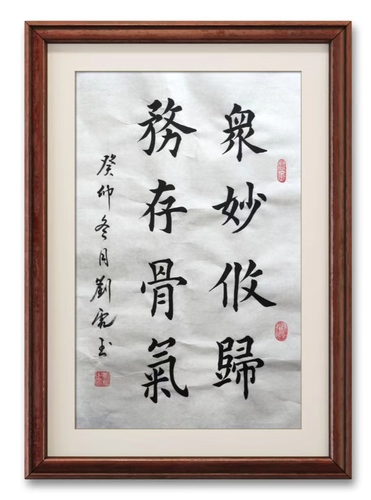 衆妙攸歸
務存骨氣
癸卯冬月劉玉